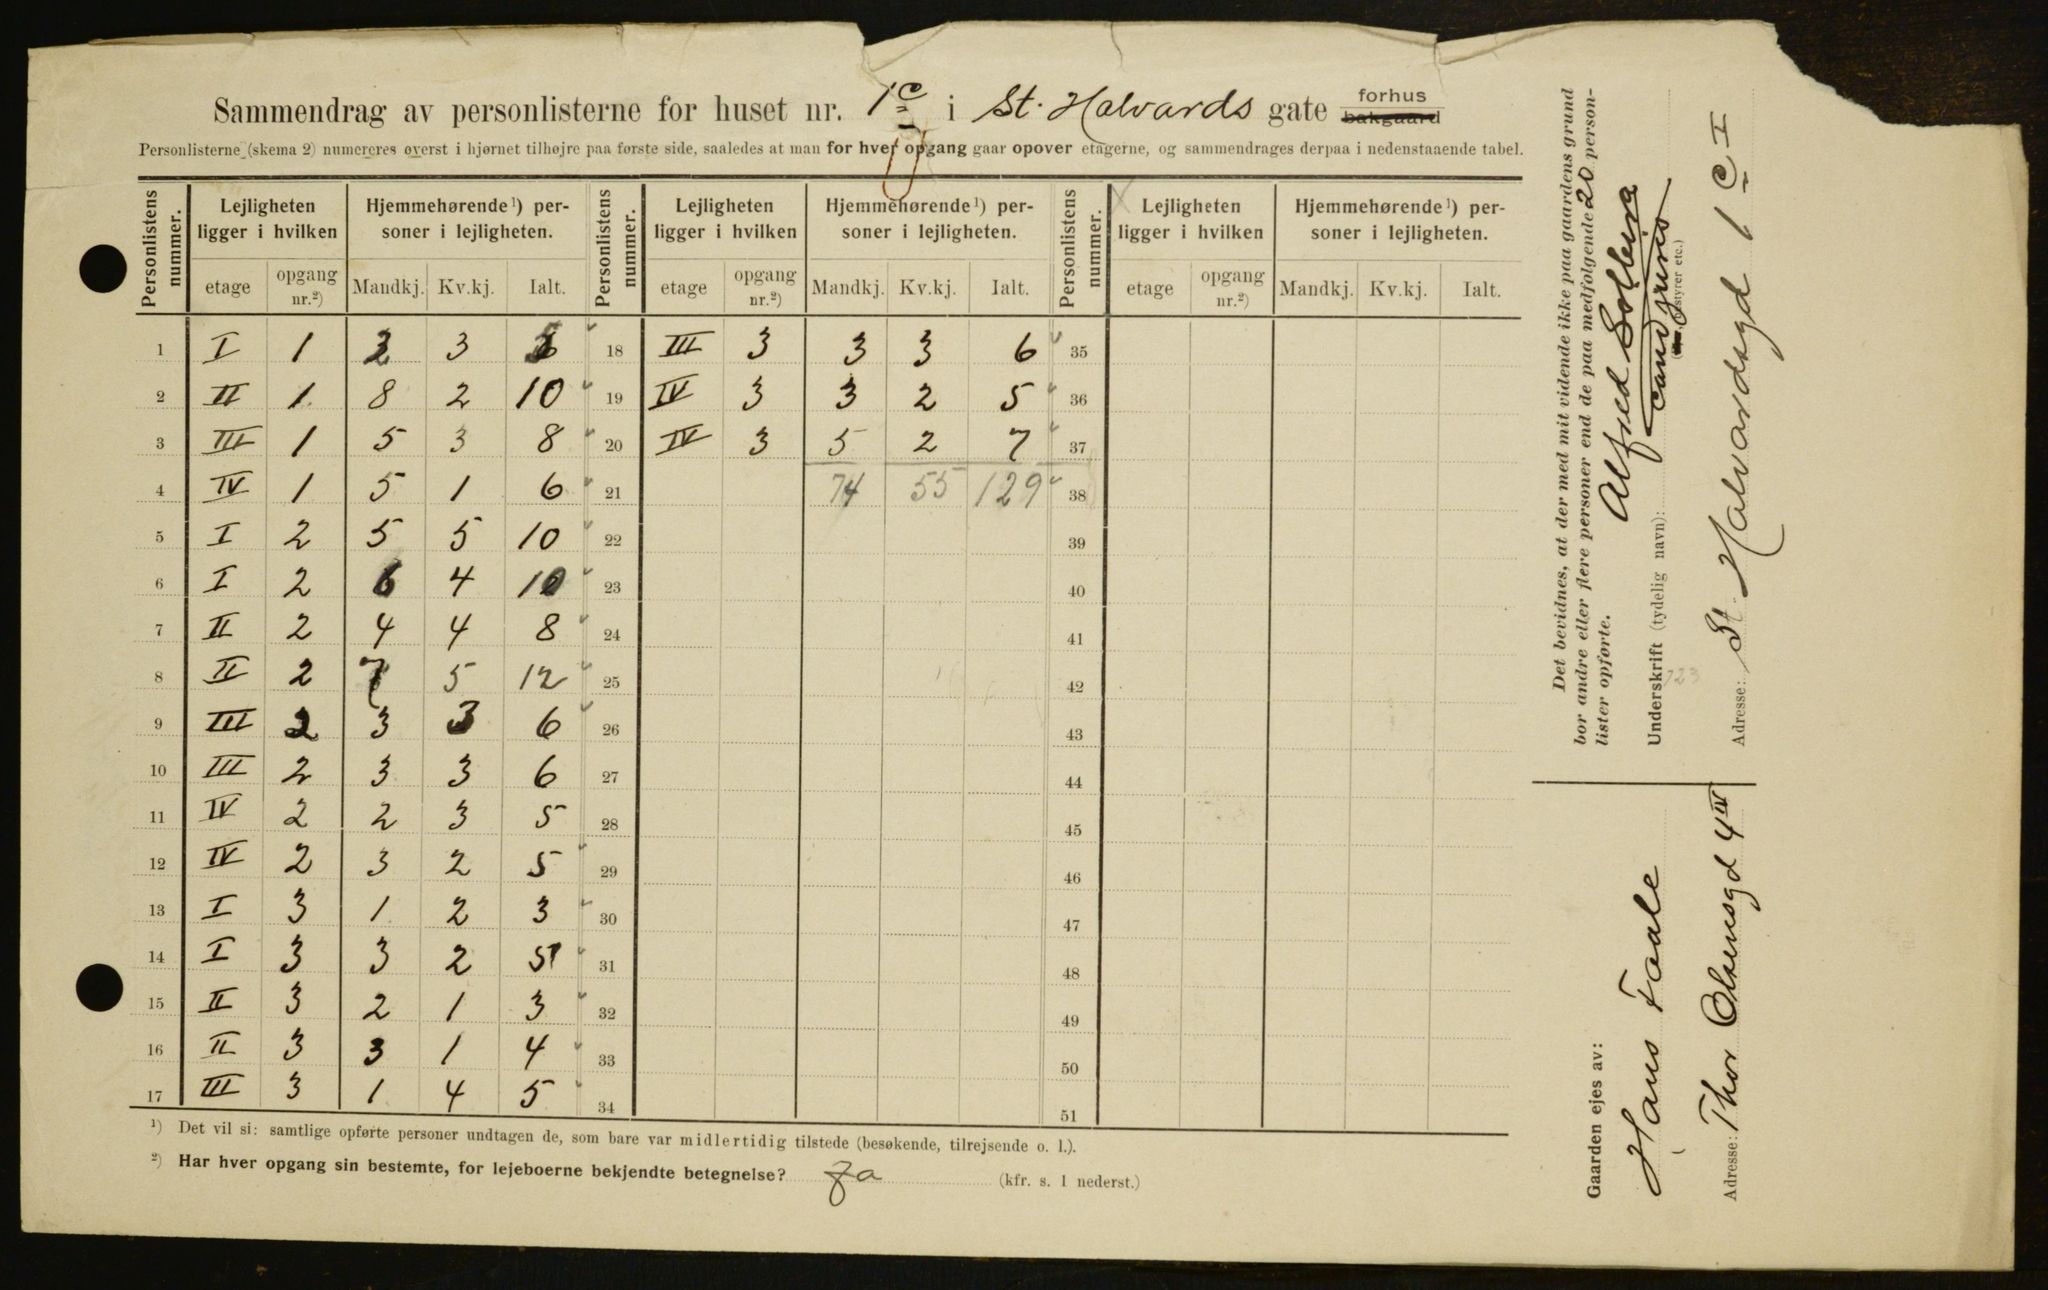 Sammendrag av personlisterne for huset nr. 1c i St. Halvards gate forhus bakgaard
Personlisterne (skema 2) numereres øverst i hjørnet tilhøjre paa første side, saaledes at man for hver opgang gaar opover etagerne, og sammendrages derpaa i nedenstaaende tabel.
Personlistens nummer. Lejligheten ligger i hvilken Hjemmehørende¹) personer i lejligheten. Personlistens nummer. Lejligheten ligger i hvilken Hjemmehørende¹) personer i lejligheten. Personlistens nummer. Lejligheten ligger i hvilken Hjemmehørende¹) personer i lejligheten.
etage opgang nr.²) Mandkj. Kv.kj. Ialt. etage opgang nr.²) Mandkj. Kv.kj. Ialt. etage opgang nr.²) Mandkj. Kv.kj. Ialt.
1 I 1 3 18 III 3 3 3 6 35
2 II 1 8 2 10 19 IV 3 3 2 5 36
3 III 1 5 3 8 20 IV 3 5 2 7 37
4 IV 1 5 1 6 21 74 55 129 38
5 I 2 5 5 10 22 39
6 I 2 6 4 10 23 40
7 II 2 4 4 8 24 41
8 II 2 7 5 12 25 42
9 III 2 3 3 6 26 43
10 III 2 3 3 6 27 44
11 IV 2 2 3 5 28 45
12 IV 2 3 2 5 29 46
13 I 3 1 2 3 30 47
14 I 3 3 2 5 31 48
15 II 3 2 1 3 32 49
16 II 3 3 1 4 33 50
17 III 3 1 4 5 34 51
¹) Det vil si: samtlige opførte personer undtagen de, som bare var midlertidig tilstede (besøkende, tilrejsende o. l.).
²) Har hver opgang sin bestemte, for lejeboerne bekjendte betegnelse? Ja (kfr. s. 1 nederst.)
Det bevidnes, at der med mit vidende ikke paa gaardens grund
bor andre eller flere personer end de paa medfølgende 20 person-
lister opførte.
Alfred Solberg
cand. juris
Underskrift (tydelig navn):
Adresse: St. Halvardsgd 1 c I
Gaarden ejes av:
Hans Faale
Adresse: Thor Olsensgd 4 IV